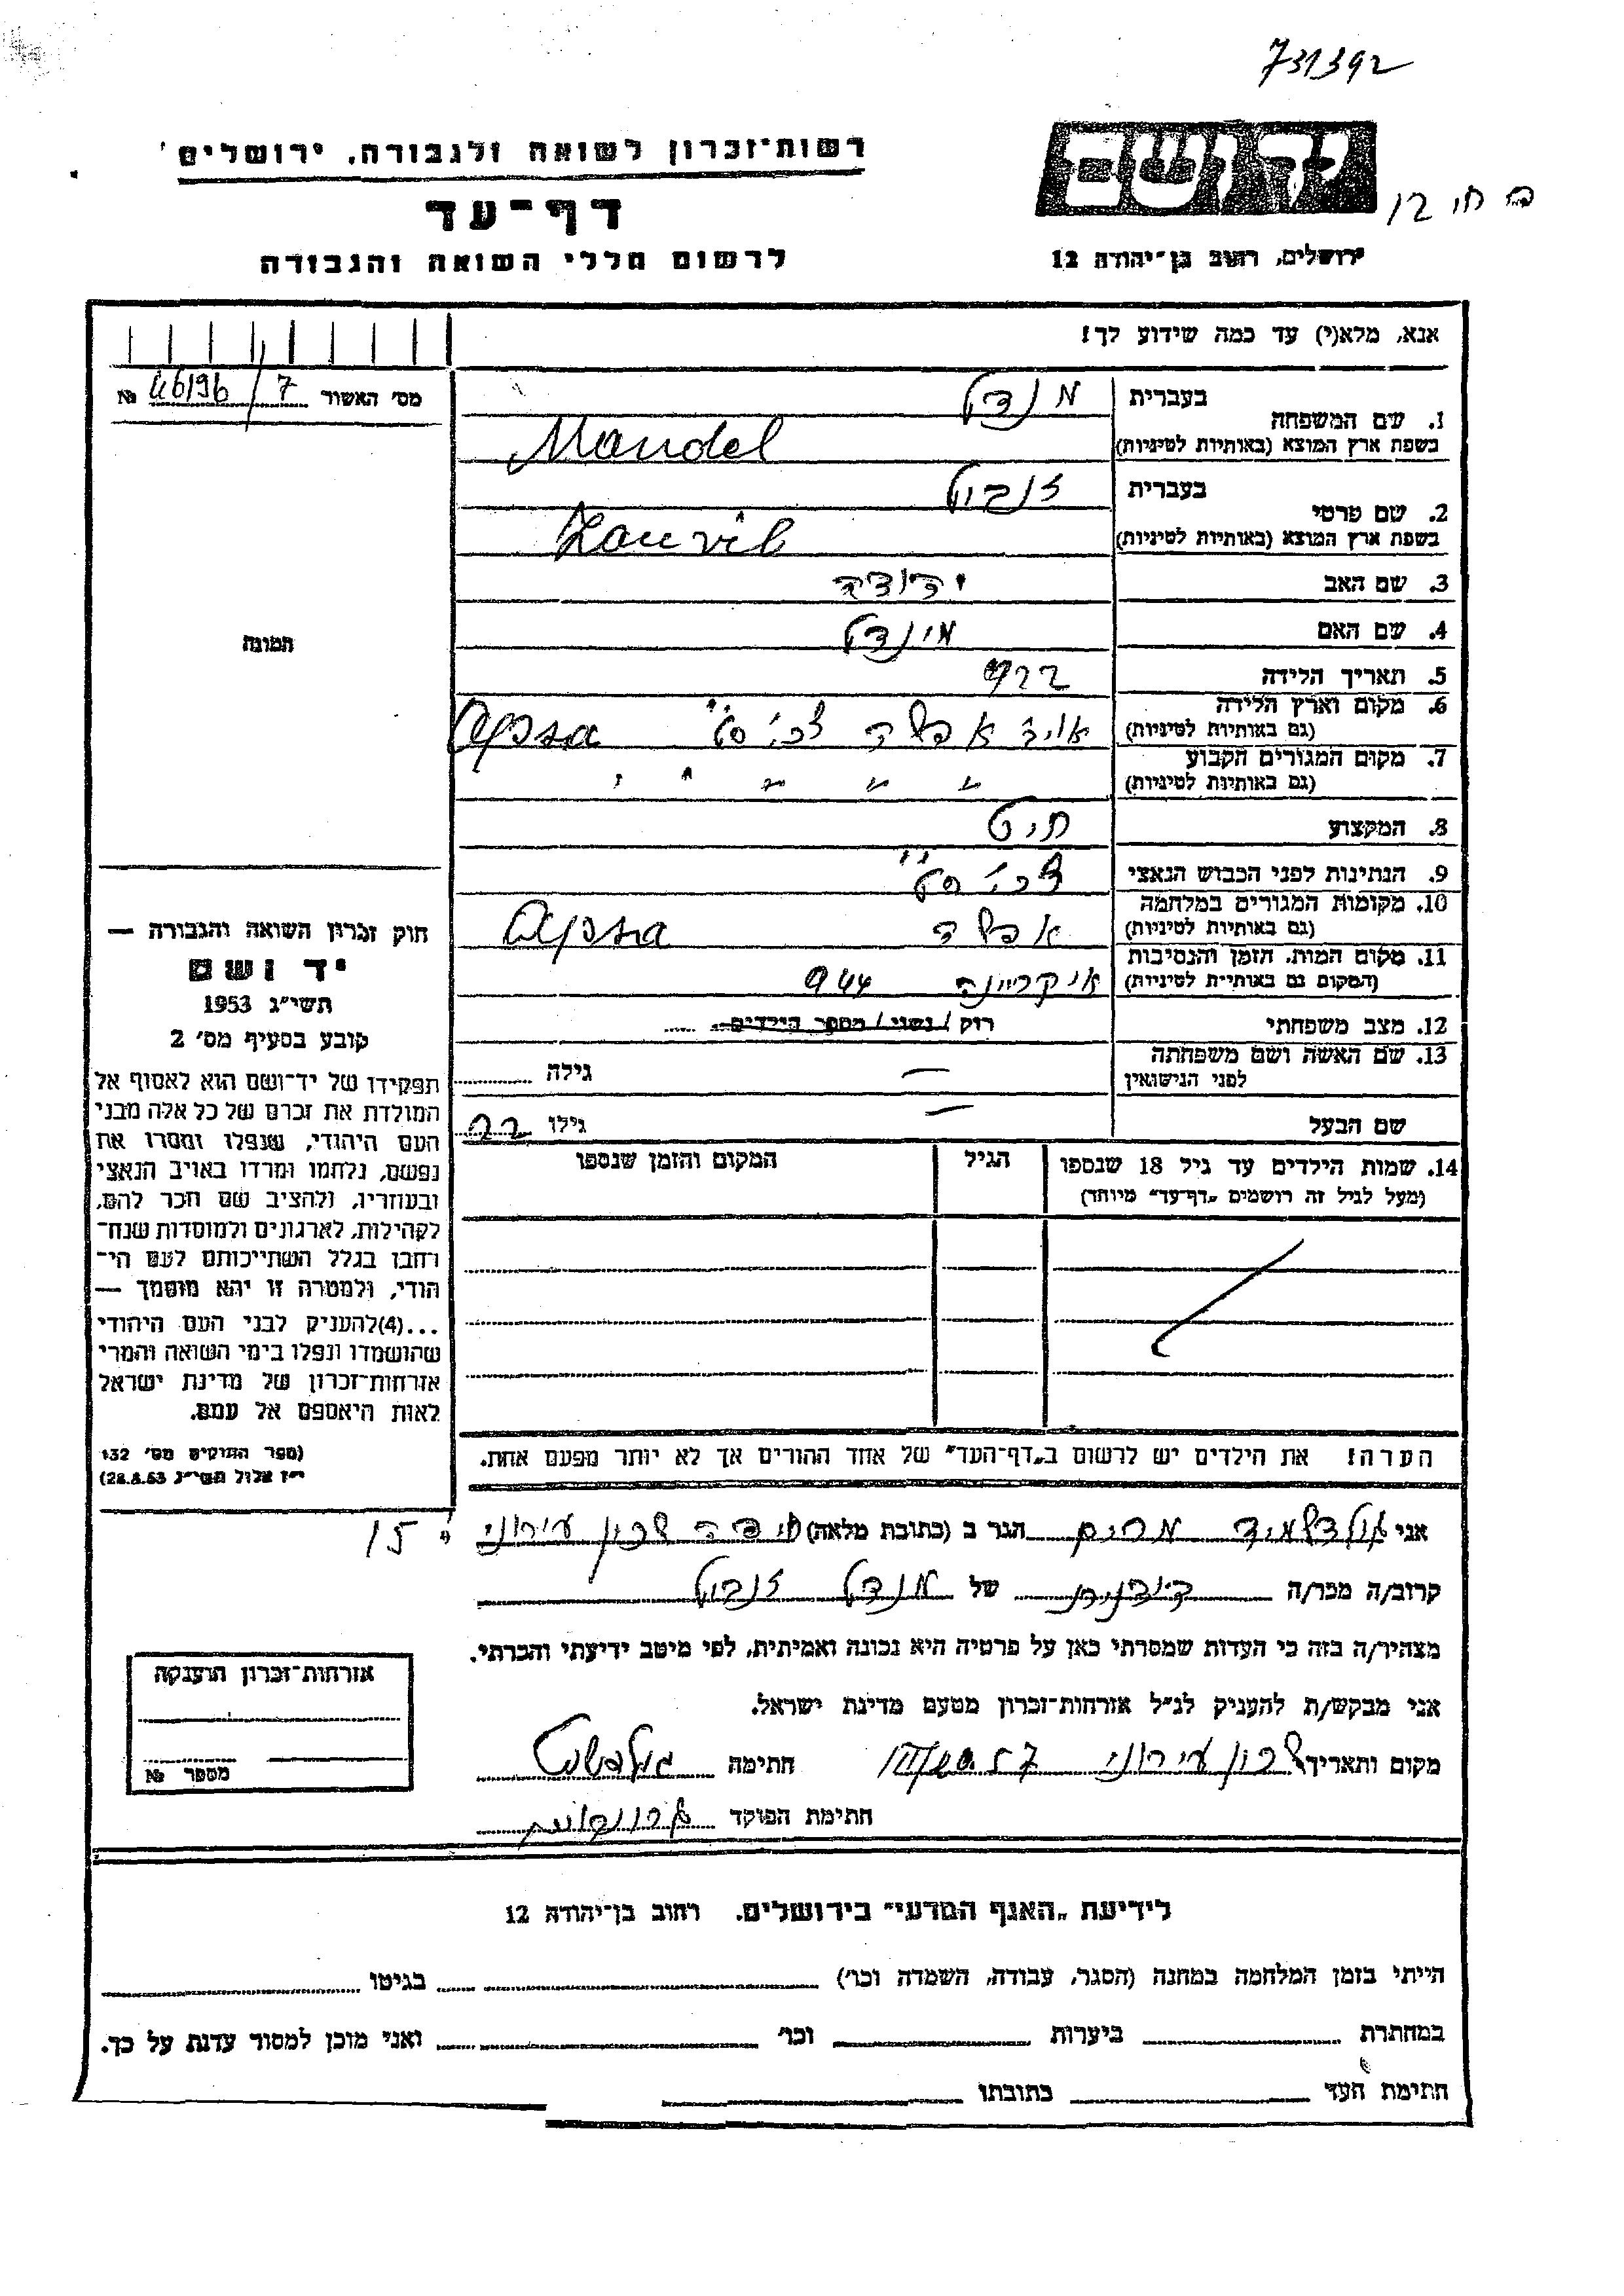 731392
רשות־זכרון לשואה ולגבורה, ירושלים
דף־עד
לרשום חללי השואה והגבורה
יד ושם
ירושלים, רחוב בן־יהודה 12
אנא, מלא(י) עד כמה שידוע לך!
מס' האשור 7/46196 №
1. שם המשפחה
בעברית מנדל
בשפת ארץ המוצא (באותיות לטיניות) Mandel
2. שם פרטי
בעברית זנביל
בשפת ארץ המוצא (באותיות לטיניות) Zanvil
3. שם האב יהודה
4. שם האם מינדל
5. תאריך הלידה 922
6. מקום וארץ הלידה
(גם באותיות לטיניות) אפשה צ'כוס' Apsa
7. מקום המגורים הקבוע
(גם באותיות לטיניות) " " " "
8. המקצוע חיט
9. הנתינות לפני הכבוש הנאצי צ'כוס'
10. מקומות המגורים במלחמה
(גם באותיות לטיניות) אפשה Apsa
11. מקום המות, הזמן והנסיבות
(המקום גם באותיות לטיניות) אוקריינה 944
12. מצב משפחתי רווק / נשוי / מספר הילדים
13. שם האשה ושם משפחתה
לפני הנישואין — גילה
שם הבעל — גילו 22
14. שמות הילדים עד גיל 18 שנספו
(מעל לגיל זה רושמים „דף־עד" מיוחד)
הגיל
המקום והזמן שנספו
הערה! את הילדים יש לרשום ב„דף־העד" של אחד ההורים אך לא יותר מפעם אחת.
תמונה
חוק זכרון השואה והגבורה —
יד ושם
תשי"ג 1953
קובע בסעיף מס' 2
תפקידו של יד־ושם הוא לאסוף אל
המולדת את זכרם של כל אלה מבני
העם היהודי, שנפלו ומסרו את
נפשם, נלחמו ומרדו באויב הנאצי
ובעוזריו, ולהציב שם וזכר להם,
לקהילות, לארגונים ולמוסדות שנח־
רבו בגלל השתייכותם לעם הי־
הודי, ולמטרה זו יהא מוסמך —
...(4) להעניק לבני העם היהודי
שהושמדו ונפלו בימי השואה והמרי
אזרחות־זכרון של מדינת ישראל
לאות היאספם אל עמם.
(ספר החוקים מס' 132
י"ז אלול תשי"ג 28.8.53)
אני גולדשמיד מרים הגר ב (כתובת מלאה) חיפה שכון עירוני 15
קרוב/ה מכר/ה של מנדל זנביל
מצהיר/ה בזה כי העדות שמסרתי כאן על פרטיה היא נכונה ואמיתית, לפי מיטב ידיעתי והכרתי.
אני מבקש/ת להעניק לנ"ל אזרחות־זכרון מטעם מדינת ישראל.
מקום ותאריך שכון עירוני חתימה
חתימת הפוקד
אזרחות־זכרון הוענקה
מספר №
לידיעת „האגף המדעי" בירושלים. רחוב בן־יהודה 12
הייתי בזמן המלחמה במחנה (הסגר, עבודה, השמדה וכו') בגיטו
במחתרת ביערות וכו' ואני מוכן למסור עדות על כך.
חתימת העד כתובתו